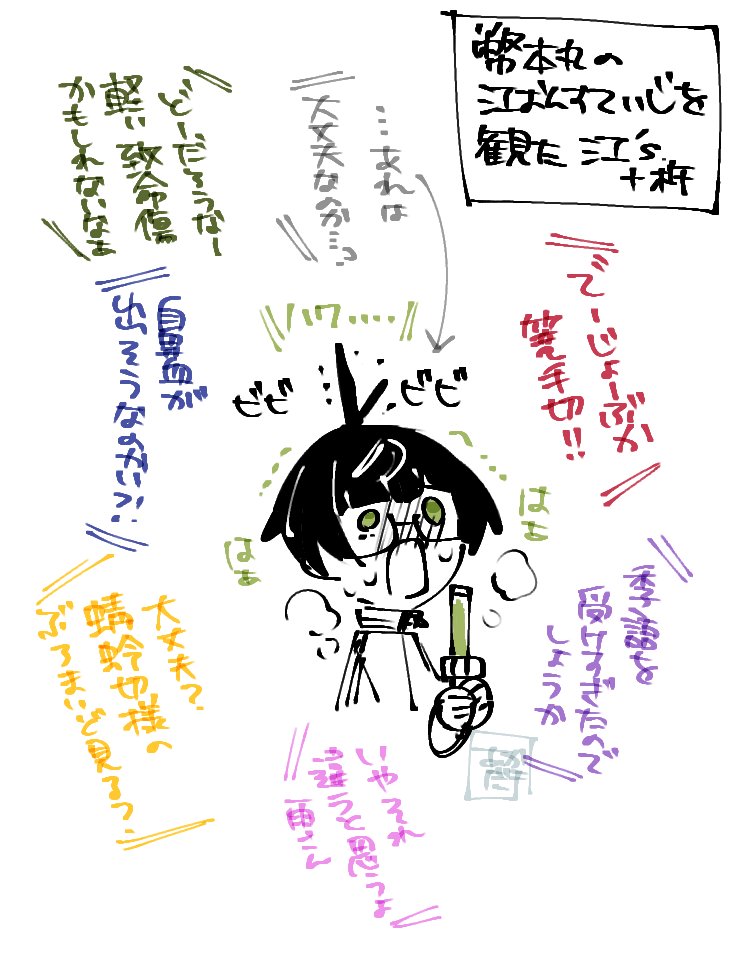 弊本丸の
江おんすていじを
観た江's
+桁
でーじょーぶか
笑え手切!!
…あれは
大丈夫なのか…?
どーだろうなー
軽い致命傷
かもしれないなぁ
ハワ……
ビビ
ビビ
はぁ
はぁ
鼻血が
出そうなのかい?!
季語を
受けすぎたので
しょうか
大丈夫?
蜻蛉切様の
ぶろまいど見るっ?
いやそれ
違うと思うよ
雨さん